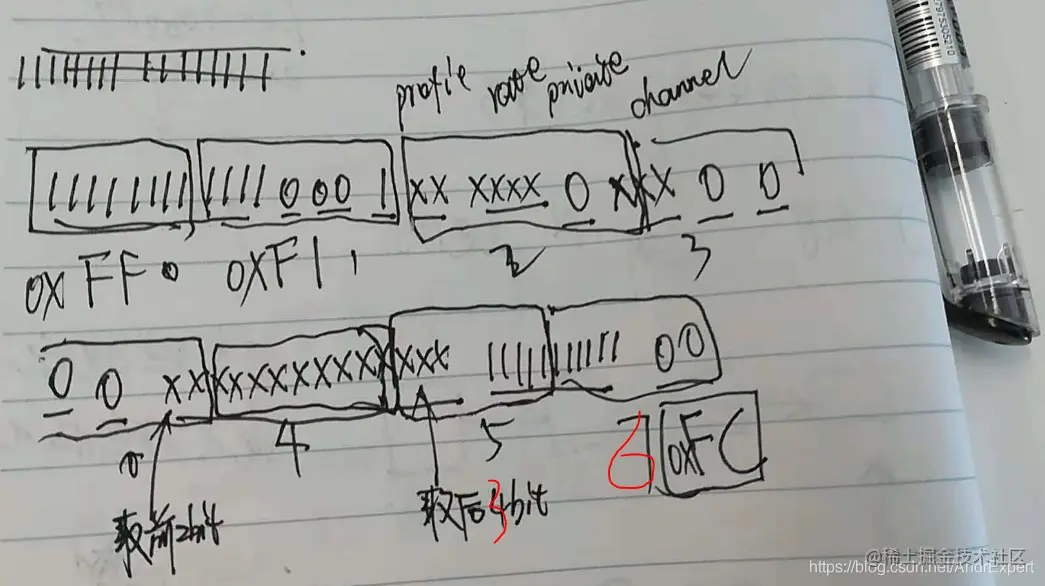 profile rate private channel
11111111 1111 000 1 XX XXXX 0 XXX 0 0
0XFF 0 0XF1 1 2 3
0 0 XX XXXXXXXX XXX 11111 111111 00
4 5 6 0XFC
取前2bit 取后3bit
@稀土掘金技术社区
https://blog.csdn.net/AndrExpert
797530521